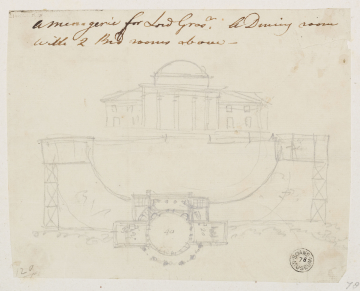 a menagerie for Lord Gros.r A Dining room
with 2 Bed rooms above -
78